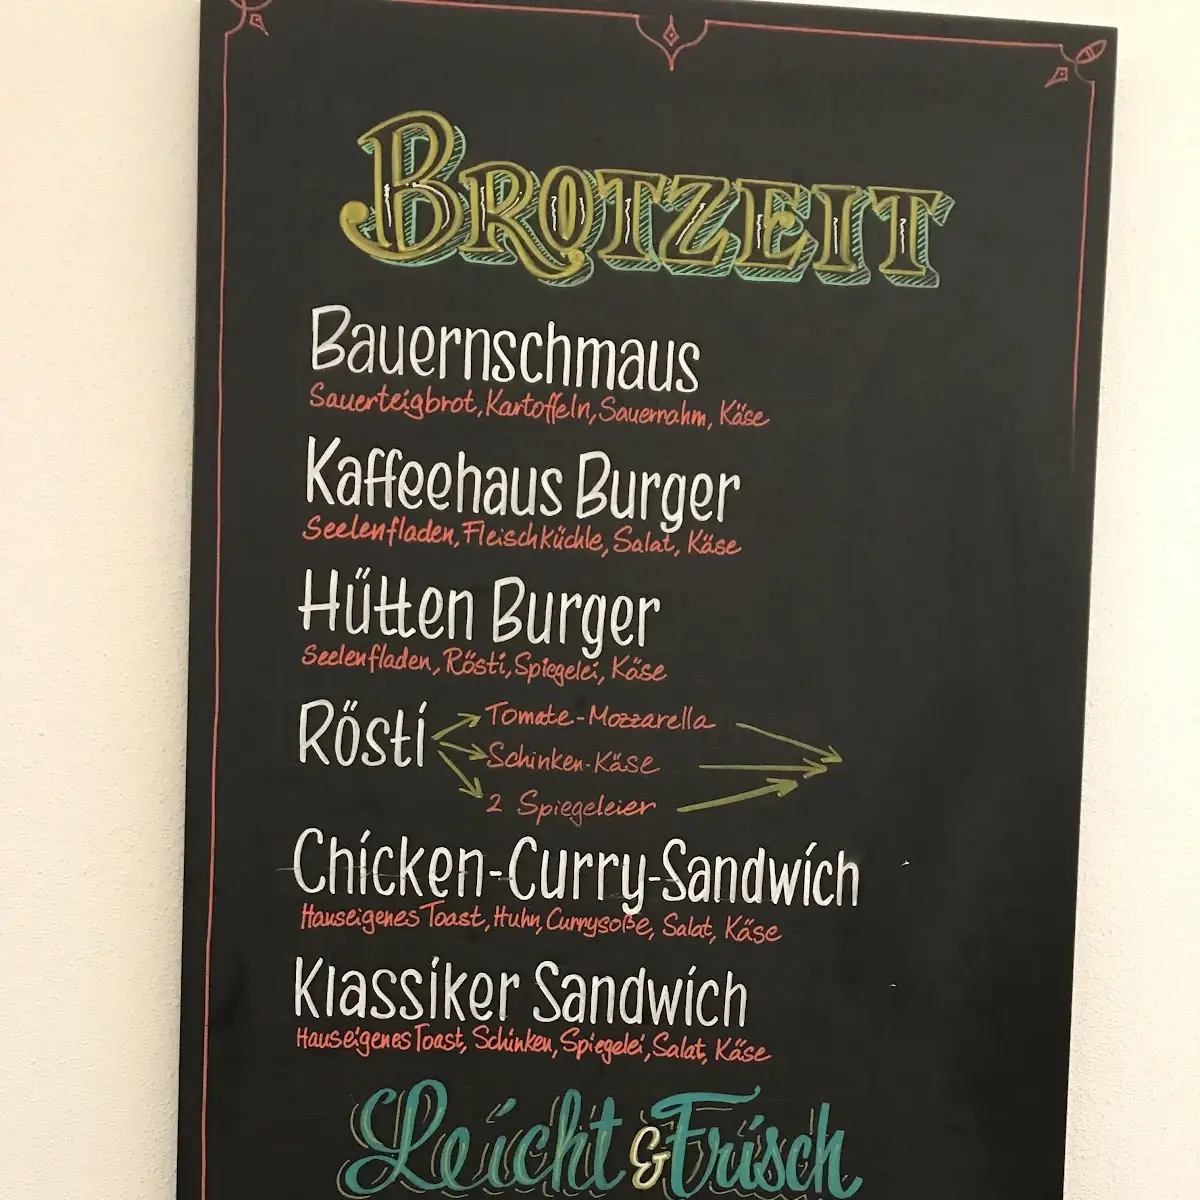 BROTZEIT
Bauernschmaus
Sauerteigbrot, Kartoffeln, Sauerrahm, Käse
Kaffeehaus Burger
Seelenfladen, Fleischküchle, Salat, Käse
Hütten Burger
Seelenfladen, Rösti, Spiegelei, Käse
Rösti
Tomate-Mozzarella
Schinken-Käse
2 Spiegeleier
Chicken-Curry-Sandwich
Hauseigenes Toast, Huhn, Currysoße, Salat, Käse
Klassiker Sandwich
Hauseigenes Toast, Schinken, Spiegelei, Salat, Käse
Leicht & Frisch